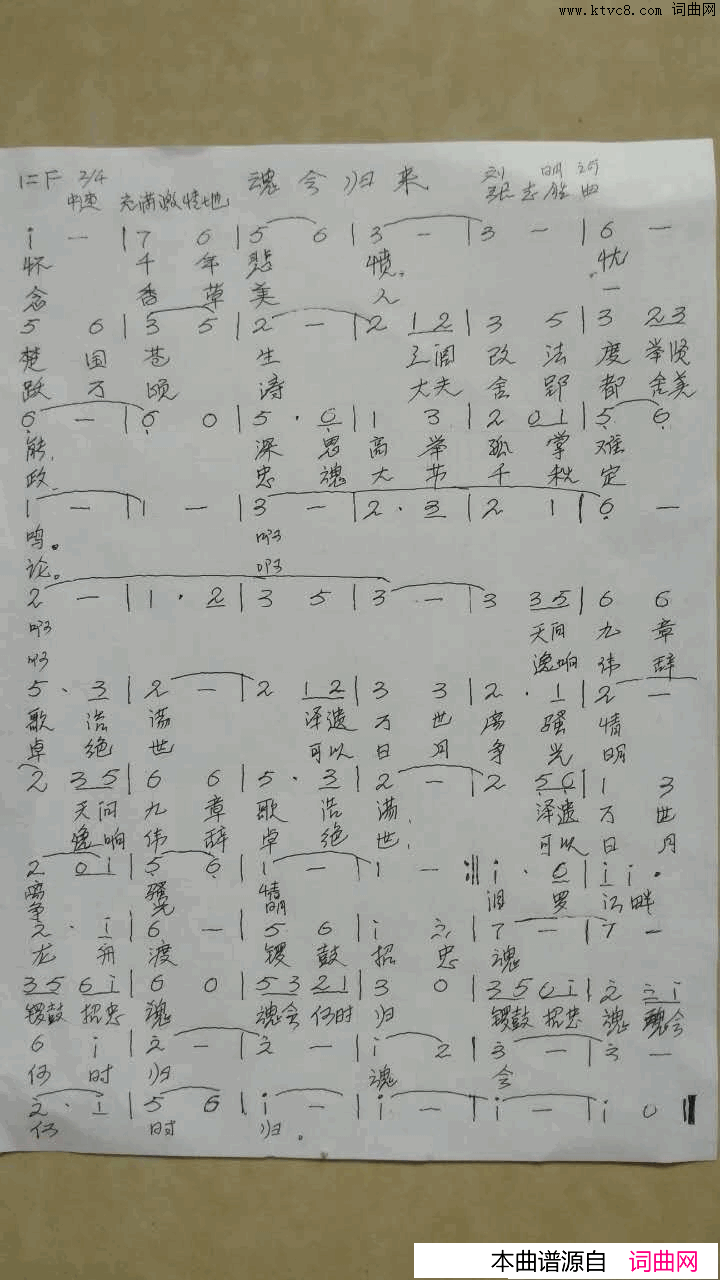 www.ktvc8.com 词曲网
1=F 2/4 魂兮归来 刘明词
中速 充满激情地 张志胜曲
i — | 7 6 | 5 6 | 3 — | 3 — | 6 —
怀 千年悲 愤。 忧
念 香草美 人 一
5 6 | 3 5 | 2 — | 2 1 2 | 3 5 | 3 2 3
楚国苍 生 改法度举贤
跃万顷 涛 大夫舍郢都舍美
6 — | 6 0 | 5 · 6 | 1 3 | 2 0 1 | 5 6
能, 深思高举孤掌难
政。 忠魂大节千秋定
1 — | 1 — | 3 — | 2 · 3 | 2 1 | 6 —
鸣。 啊
论。 啊
2 — | 1 · 2 | 3 5 | 3 — | 3 3 5 | 6 6
啊 天问九章
啊 逸响伟辞
5 · 3 | 2 — | 2 1 2 | 3 3 | 2 · 1 | 2 —
歌浩荡 泽遗万世离骚情
卓绝世 可以日月争光明
2 3 5 | 6 6 | 5 · 3 | 2 — | 2 5 6 | 1 3
天问九章歌浩荡, 泽遗万世
逸响伟辞卓绝世, 可以日月
2 0 1 | 5 6 | 1 — | 1 — :‖ i · 6 | i i ·
离 骚 情 汨罗江畔
争 光 明
2 · i | 6 — | 5 6 | i 2 | 7 — | 7 —
龙舟渡 锣鼓招忠魂
3 5 6 i | 6 0 | 5 3 2 1 | 3 0 | 3 5 6 i | 2 2 i
锣鼓招忠魂 魂兮何时归 锣鼓招忠魂 魂兮
6 i | 2 — | 2 — | i 2 | 3 — | 3 —
何时归 魂 兮
2 · i | 5 6 | i — | i — | i — | i 0 ‖
何 时 归。
本曲谱源自 词曲网